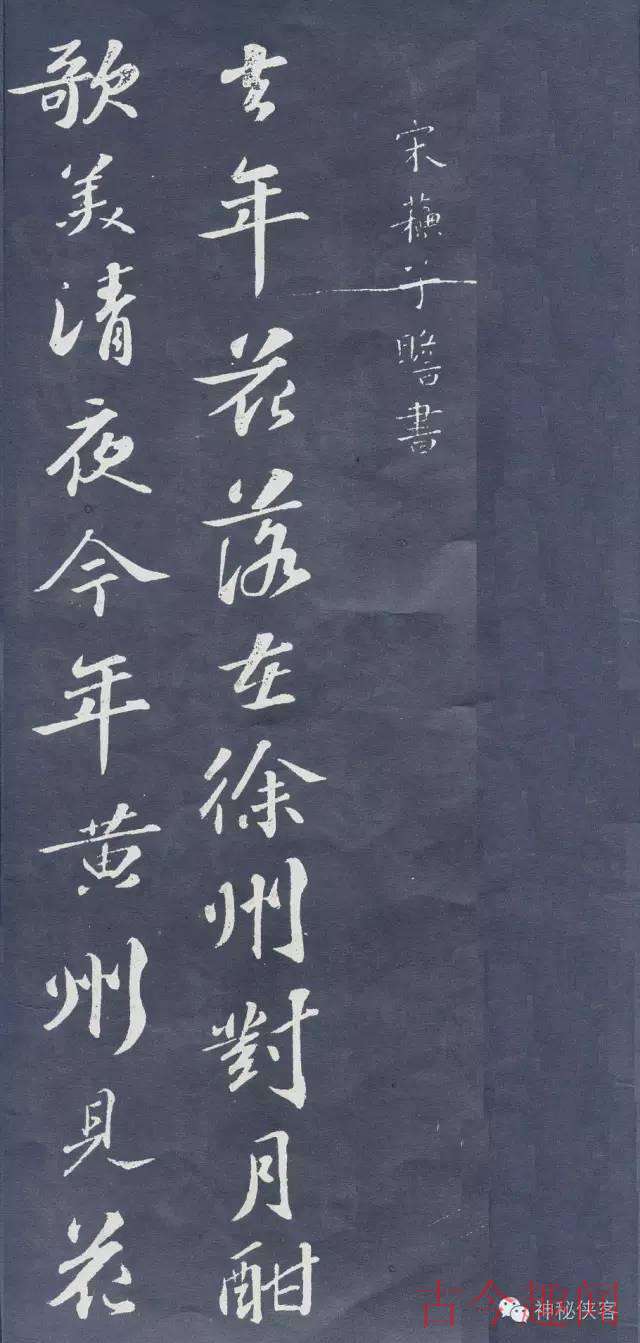 宋蘓子瞻書
去年花落在徐州對月酣
歌美清夜今年黄州見花
古今趣闻
神秘侠客